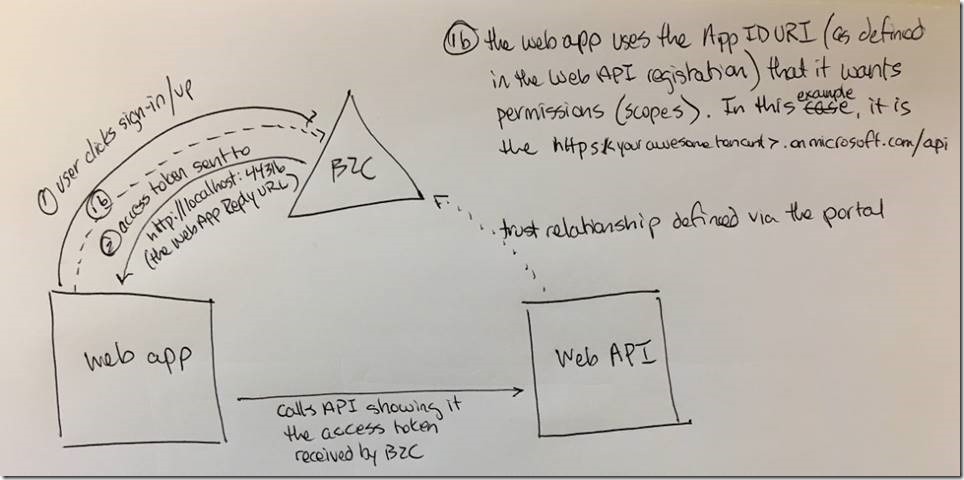 1b the web app uses the App ID URI (as defined
in the Web API registation) that it wants
permissions (scopes). In this case example, it is
the https:<your awesome tenant>.onmicrosoft.com/api
1 user clicks sign-in/up
1b
2 access token sent to
http://localhost:44316
(the Web App Reply URL)
B2C
trust relationship defined via the portal
web app
Web API
calls API showing it
the access token
received by B2C